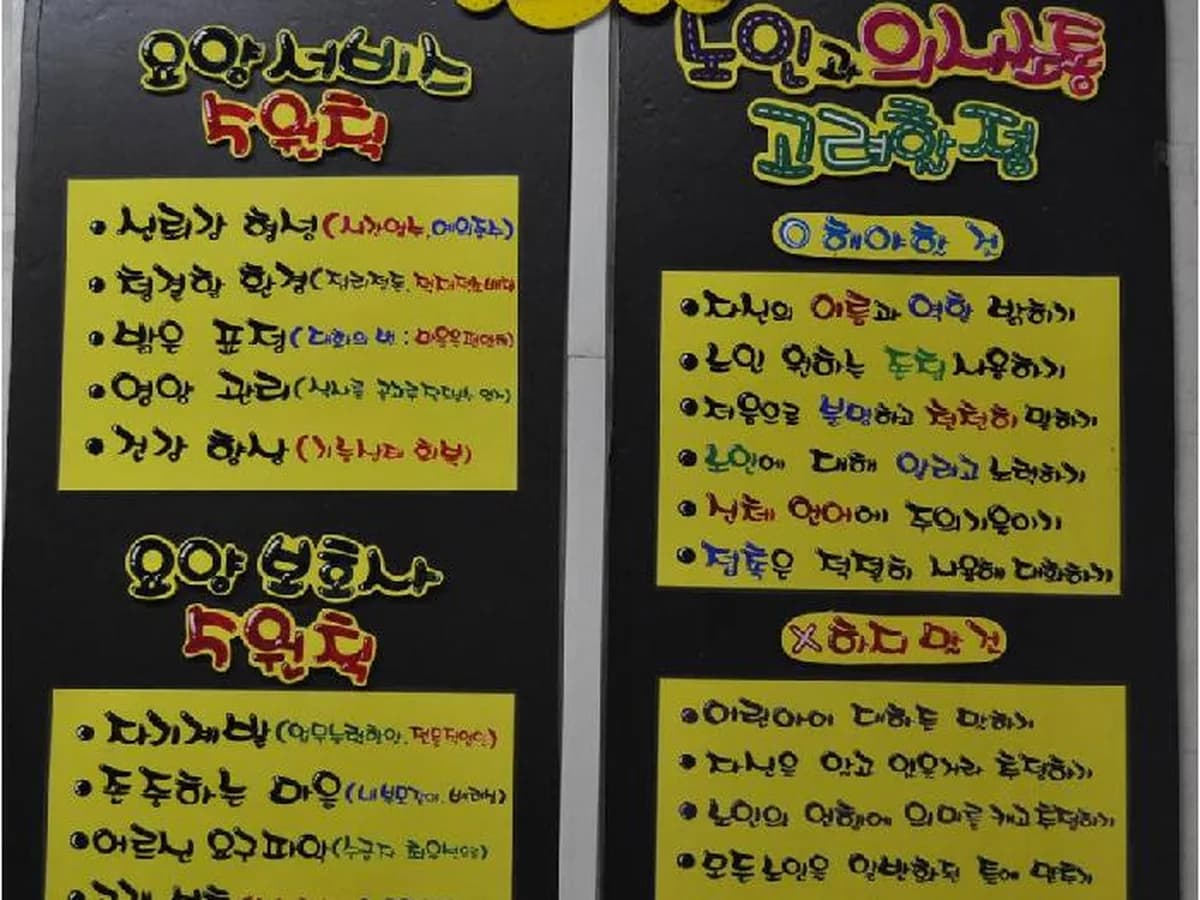 요양 서비스
5원칙
• 신뢰감 형성 (시간엄수, 예의준수)
• 청결할 환경 (정리정돈,
• 밝은 표정 (대화의 반 : 마음을
• 영양 관리 (식사를 골고루
• 건강 향상 (기능상태 회복)
요양 보호사
5원칙
• 자기계발 (업무능력향상, 전문직업인)
• 존중하는 마음 (내부모같이, 배려심)
• 어르신 요구파악 (수급자 최우선으로)
노인과 의사소통
고려할 점
O 해야할 것
• 자신의 이름과 역할 밝히기
• 노인 원하는 존칭 사용하기
• 저음으로 분명하고 천천히 말하기
• 노인에 대해 알려고 노력하기
• 신체 언어에 주의기울이기
• 접촉은 적절히 사용해 대화하기
X 하지 말 것
• 어린아이 대하듯 말하기
• 자신을 알고 있을거라 추정하기
• 노인의 언행에 의미를 캐고 투덜하기
• 모든 노인을 일반화된 틀에 맞추기